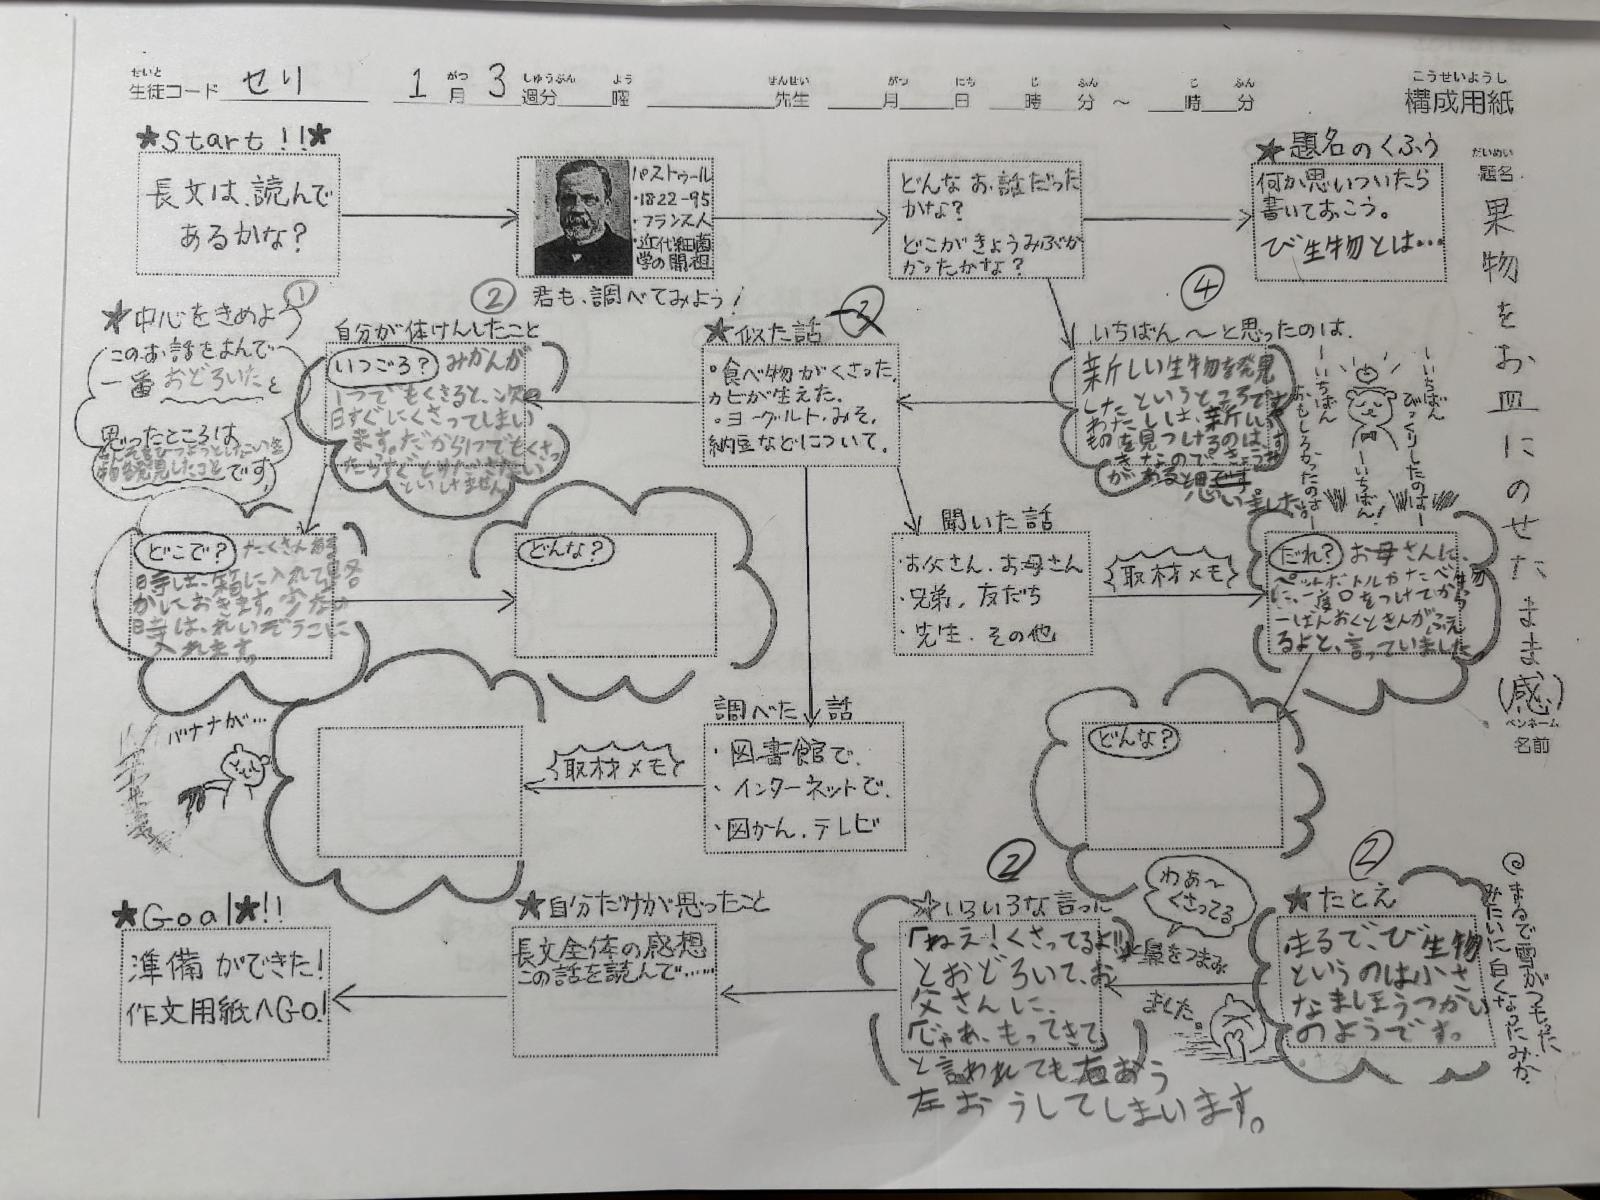 せいと
生徒コード せり 1月 3週分 曜 先生 月 日 時 分 ～ 時 分
がつ しゅうぶん よう せんせい がつ にち じ ふん じ ふん
こうせいようし
構成用紙
だいめい
題名
果物をお皿にのせたまま(感)
ペンネーム
名前
★Start!!★
長文は、読んで
あるかな?
パストゥール
・1822-95
・フランス人
・近代細菌
学の開祖
君も、調べてみよう!
どんなお話だった
かな?
どこがきょうみぶか
かったかな?
★題名のくふう
何か思いついたら
書いておこう。
び生物とは…
①
★中心をきめよう
このお話をよんで
一番おどろいたと
思ったところは
生
物を発見したことです。
②
自分が体けんしたこと
いつごろ? みかんが
1つでもくさると、次の
日すぐにくさってしまい
ます。だから1つでもくさっ
たらすぐとりださない
といけません。
②
★似た話
・食べ物がくさった。
カビが生えた。
・ヨーグルト、みそ、
納豆などについて。
④
いちばん 〜と思ったのは、
新しい生物を発見
したというところです。
わたしは、新しい
ものを見つけるのは、す
きなので、きょうみ
があると思です
思いました。
ーいちばん
おもしろかったのはー
ーいちばん!
ーいちばん
びっくりしたのはー
どこで? たくさんある
時は、箱に入れて
かしておきます。少ない
時は、れいぞうこに
入れます。
どんな?
聞いた話
・お父さん、お母さん
・兄弟、友だち
・先生、その他
取材メモ
だれ? お母さんに、
ペットボトルやたべ物
に、一度口をつけてから
一ばんおくときんがふえ
るよと、言っていました。
バナナが…
調べた話
・図書館で、
・インターネットで、
・図かん、テレビ
取材メモ
どんな?
②
★たとえ
まるで、び生物
というのは小さ
なまほうつかい
のようです。
@まるで雪がつもった
みたいに白くなったみか
わぁ〜
くさってる
と鼻をつまみ
ました。
②
★いろいろな言った
「ねえ!くさってるよ!!」
とおどろいて、お
父さんに、
「じゃあ、もってきて」
と言われても右おう
左おうしてしまいます。
★自分だけが思ったこと
長文全体の感想
この話を読んで……
★Goal★!!
準備ができた!
作文用紙へGo!